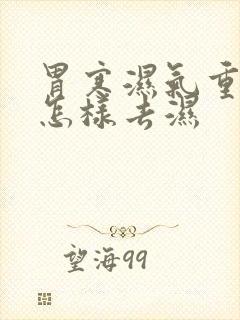 胃寒濕氣重
怎樣去濕
望海99